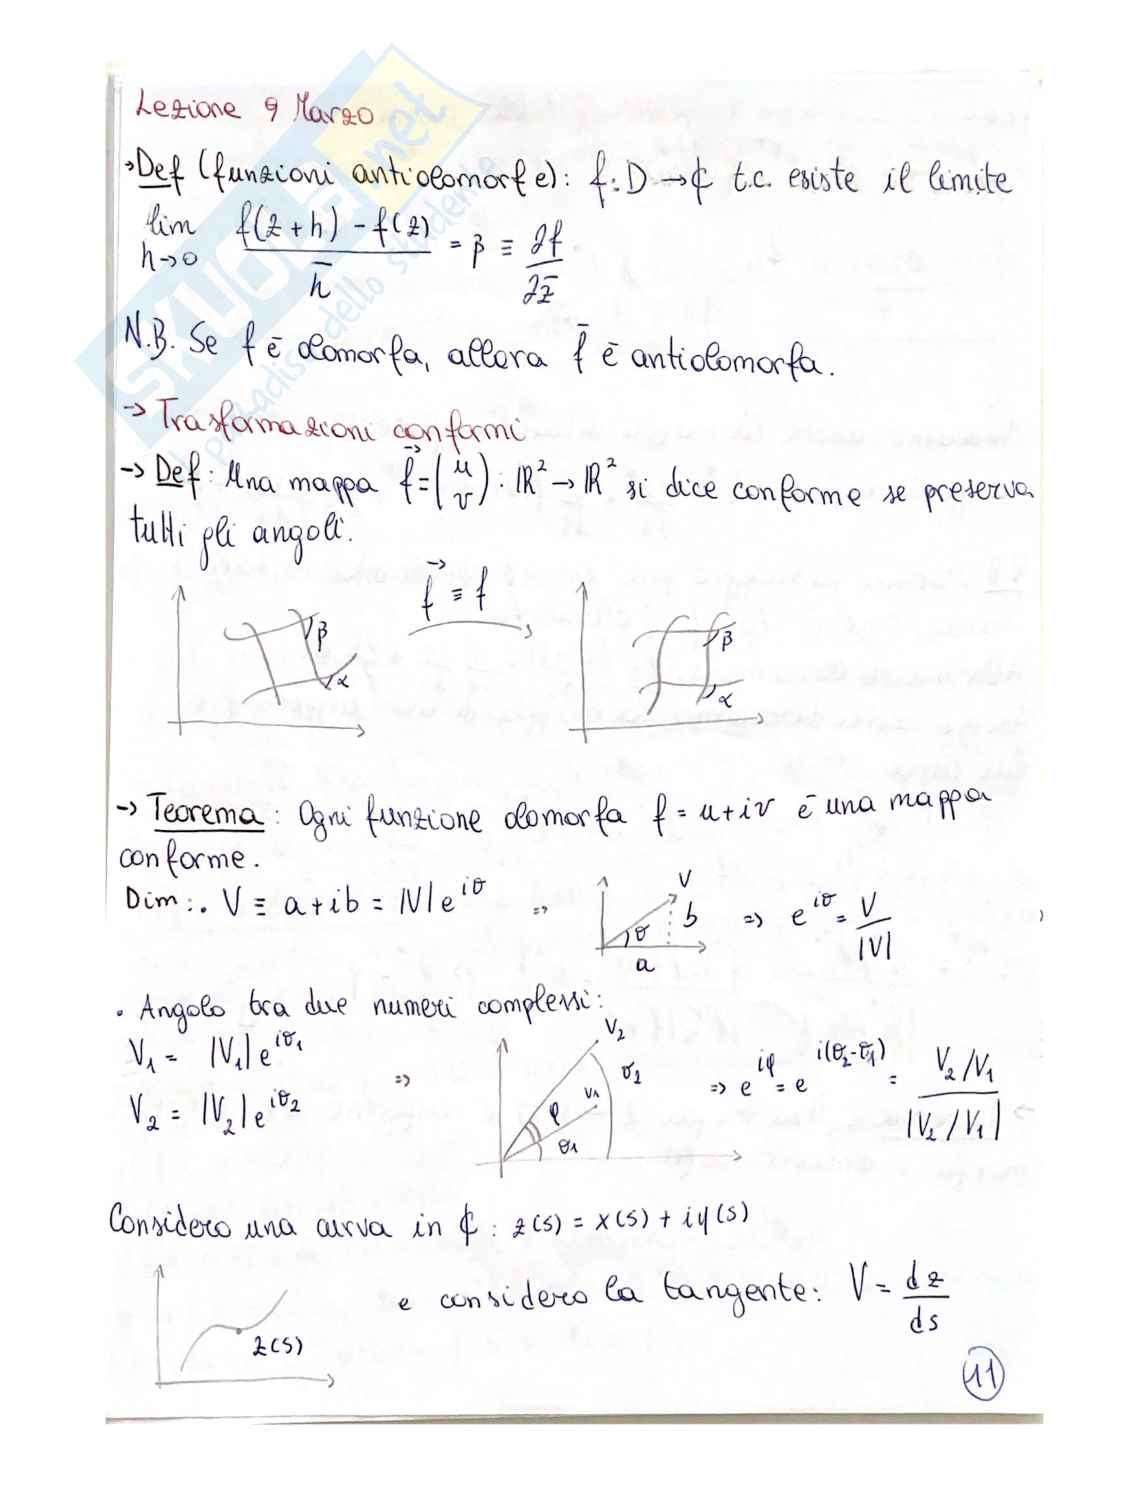 Lezione 9 Marzo
→Def (funzioni antiolomorfe): f:D→ℂ t.c. esiste il limite
lim h→0 (f(z+h) - f(z))/h̄ = β ≡ ∂f/∂z̄
N.B. Se f è olomorfa, allora f̄ è antiolomorfa.
→ Trasformazioni conformi
→ Def: Una mappa f⃗=(u v): ℝ²→ℝ² si dice conforme se preserva
tutti gli angoli.
f⃗ ≡ f
β
α
β
α
→ Teorema: Ogni funzione olomorfa f = u+iv è una mappa
conforme.
Dim:. V ≡ a+ib = |V|e^{iθ} ⇒ V b θ a ⇒ e^{iθ} = V/|V|
• Angolo tra due numeri complessi:
V₁ = |V₁|e^{iθ₁}
V₂ = |V₂|e^{iθ₂}
⇒ V₂ θ₂ V₁ φ θ₁ ⇒ e^{iφ} = e^{i(θ₂-θ₁)} = (V₂/V₁)/|V₂/V₁|
Considero una curva in ℂ: z(s) = x(s) + iy(s)
z(s)
e considero la tangente: V = dz/ds
11
SKUOLA.net
il paradiso dello studente